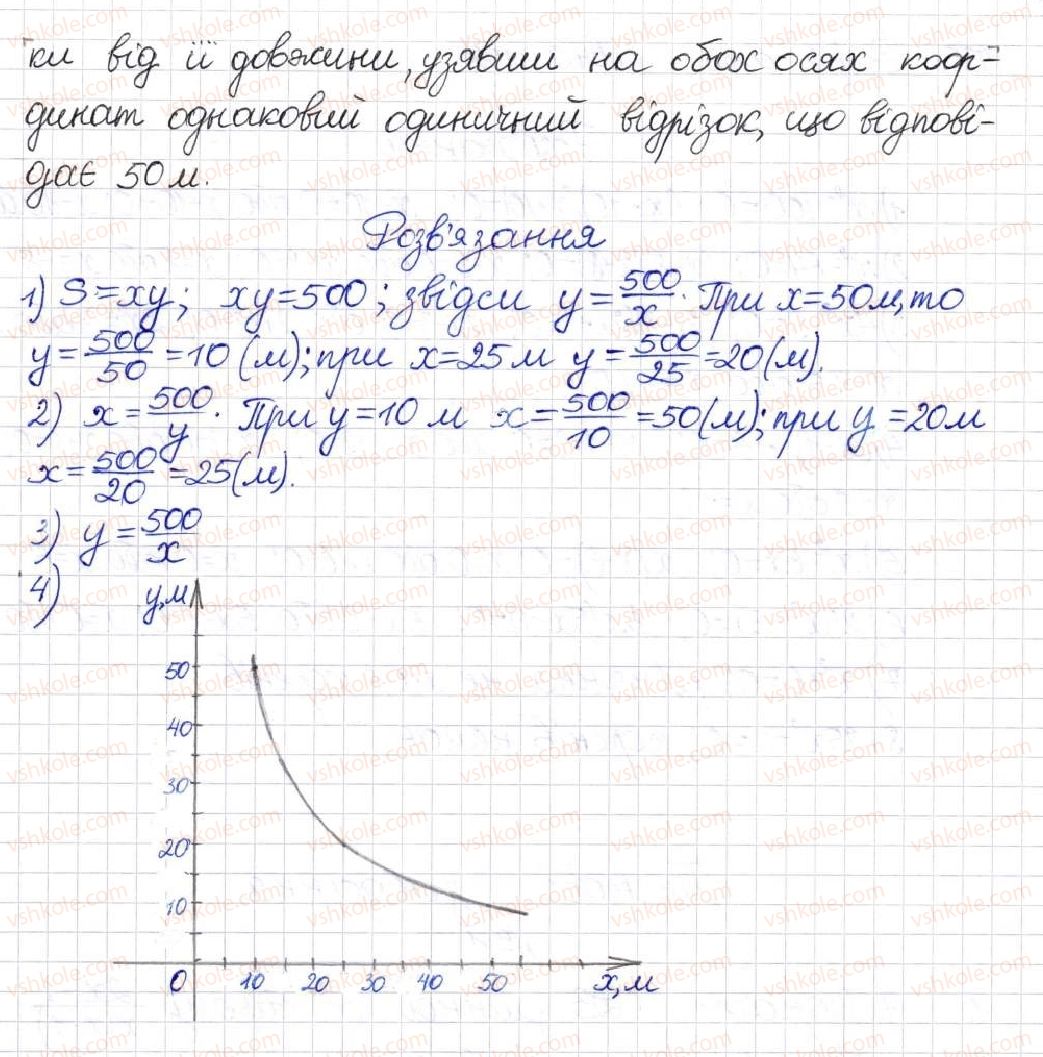 ки від її довжини, узявши на обох осях коор-
динат однаковий одиничний відрізок, що відпові-
дає 50 м.
Розв'язання
1) S=xy; xy=500; звідси y=500/x. При x=50м, то
y=500/50=10 (м); при x=25 м y=500/25=20(м).
2) x=500/y. При y=10 м x=500/10=50(м); при y=20м
x=500/20=25(м).
3) y=500/x
4) y,м
50
40
30
20
10
0 10 20 30 40 50 x,м
vshkole.com